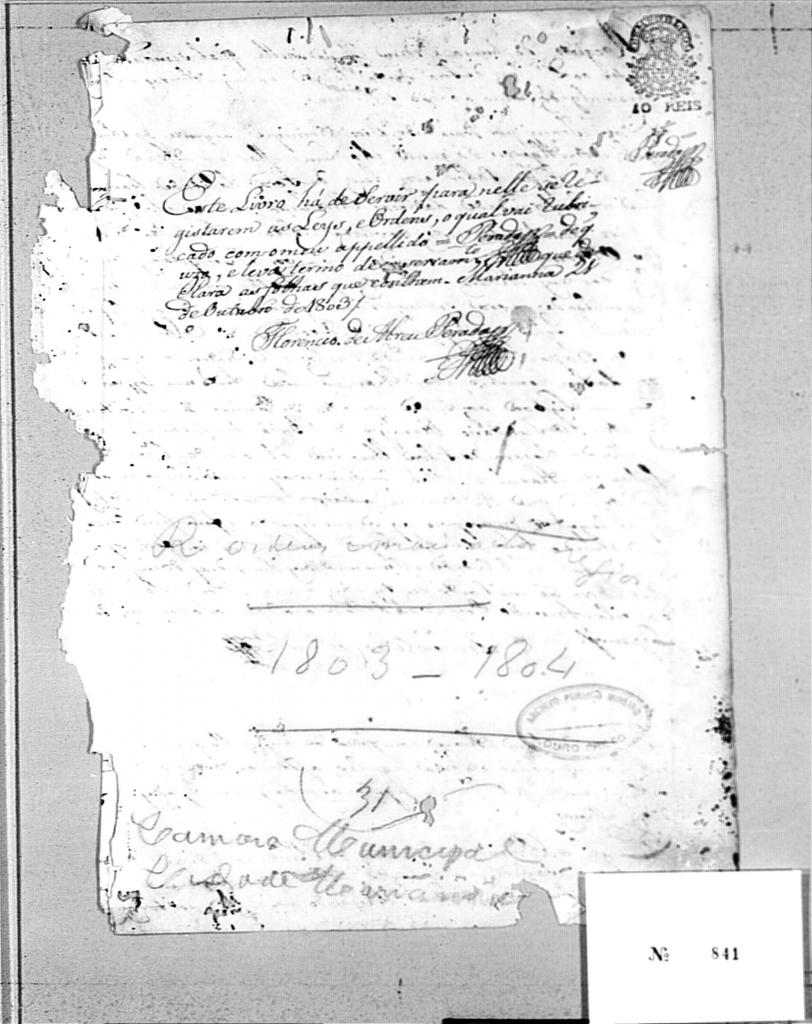 10 REIS
Perada
Este Livro há de Servir para nelle se re-
gistarem as Leys, e Ordens, o qual vai rubri-
cado com o meu appellido = Perada = de q.
uzo, e leva termo de que de-
clara as folhas que conthem. Marianna 28
de Outubro de 1803
Florencio de Abreu Perada
ordens
1803 - 1804
ARCHIVO PUBLICO MINEIRO
OURO PRETO
31
Camara Municipal
Cidade Marianna
Nº 841